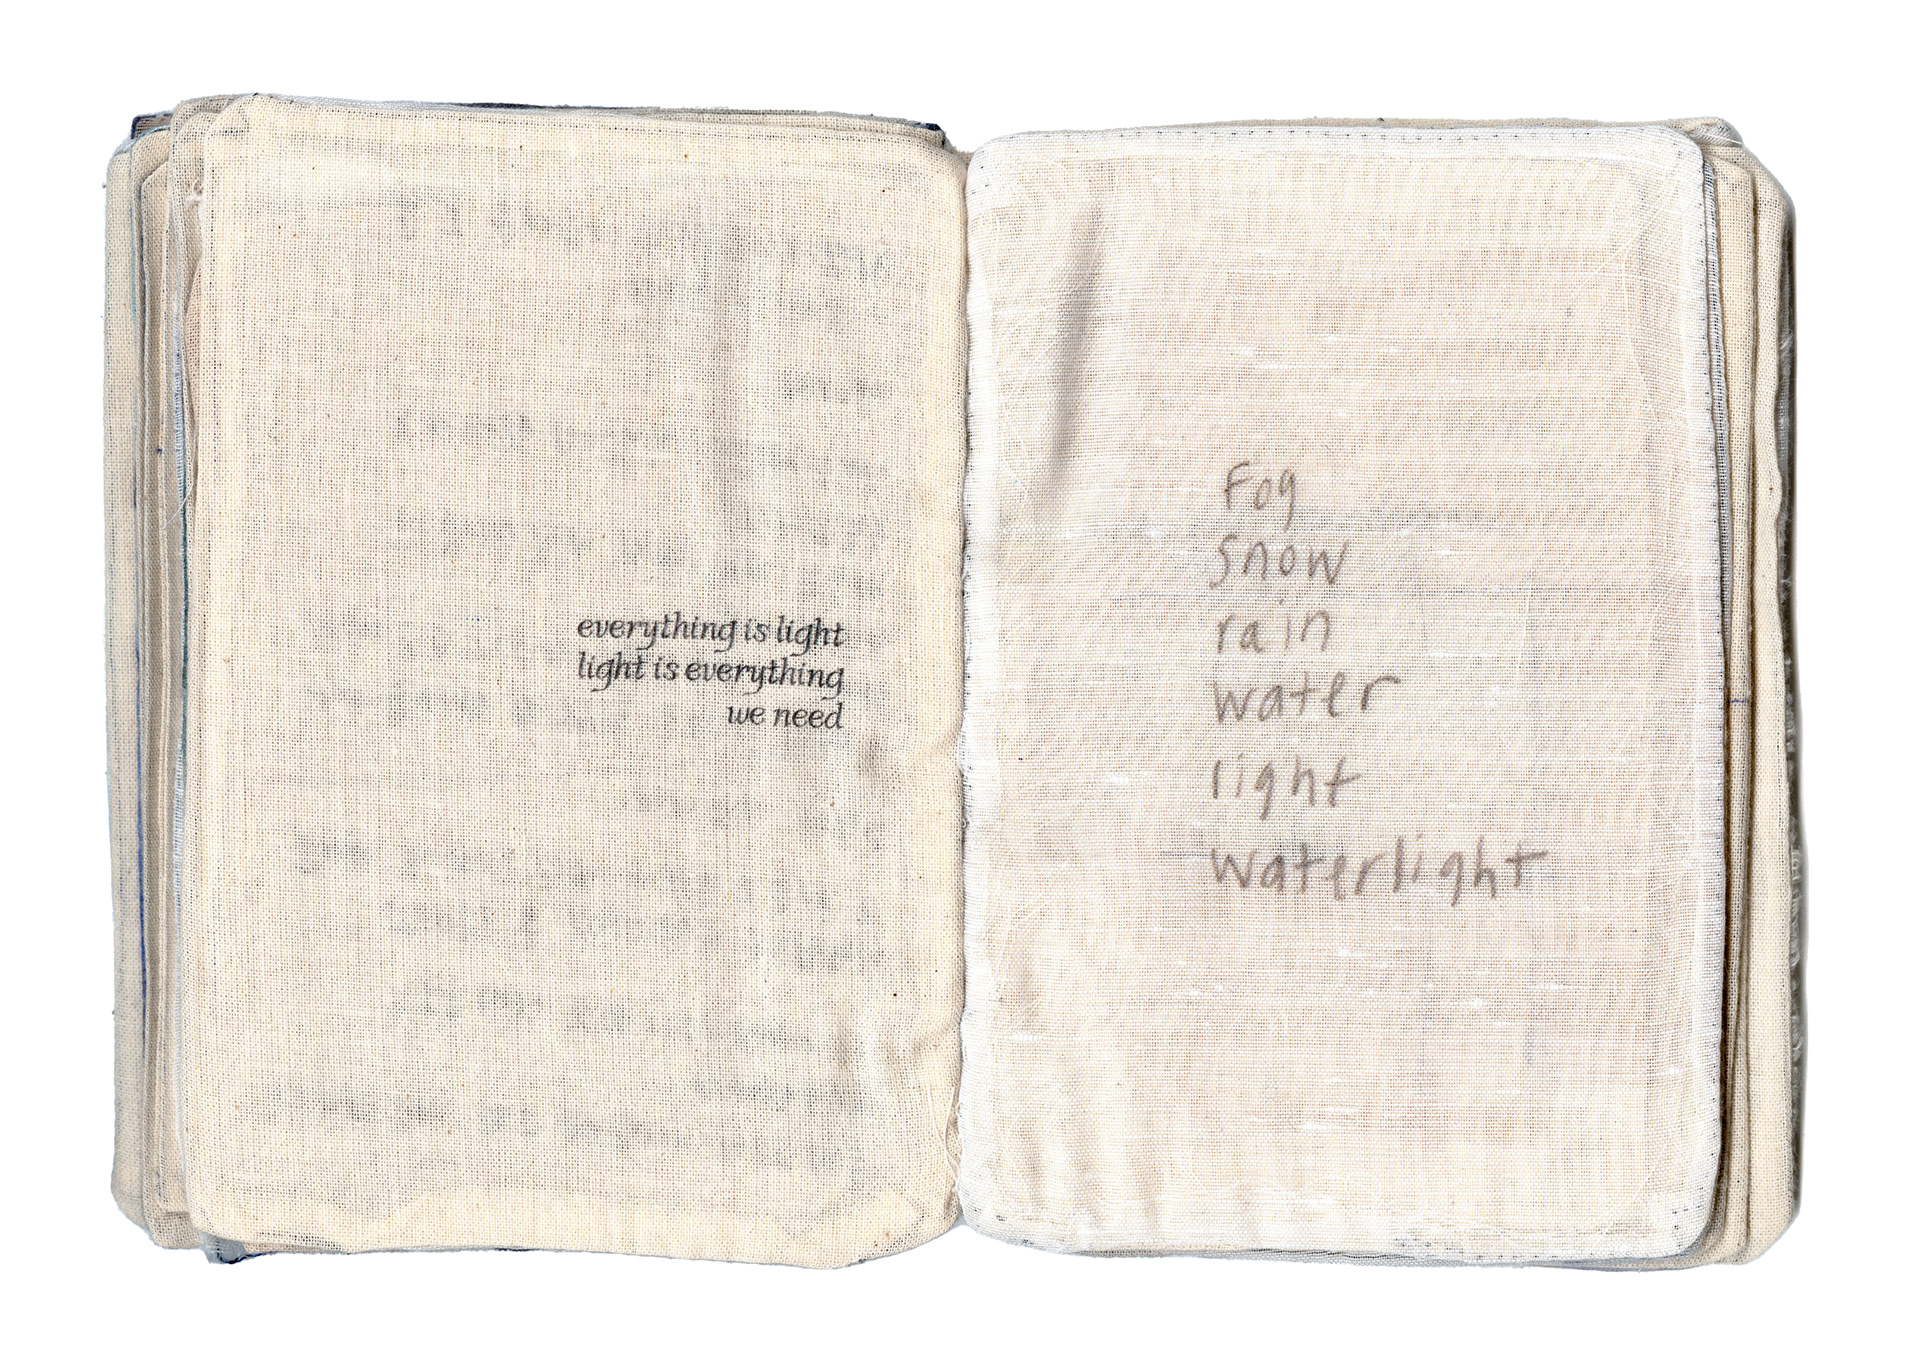 everything is light
light is everything
we need
Fog
snow
rain
water
light
waterlight